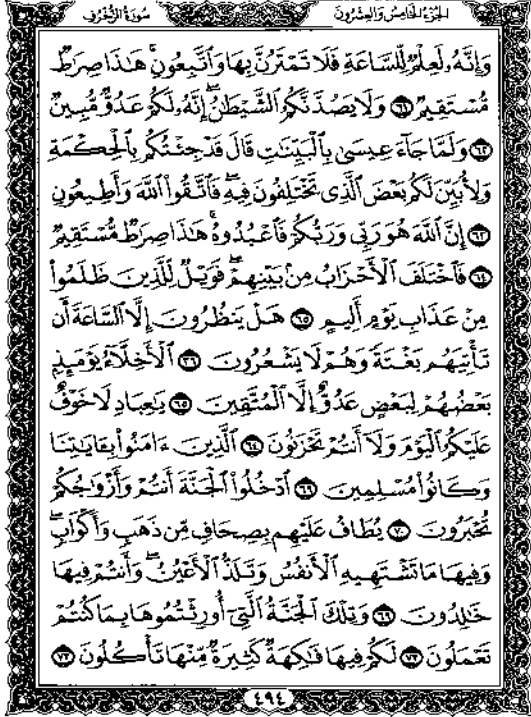 الجُزْءُ الخَامِسُ وَالعِشْرُونَ سُورَةُ الزُّخْرُفِ
وَإِنَّهُۥ لَعِلْمٌ لِّلسَّاعَةِ فَلَا تَمْتَرُنَّ بِهَا وَٱتَّبِعُونِ ۚ هَـٰذَا صِرَٰطٌ
مُّسْتَقِيمٌ ٦١ وَلَا يَصُدَّنَّكُمُ ٱلشَّيْطَـٰنُ ۖ إِنَّهُۥ لَكُمْ عَدُوٌّ مُّبِينٌ
٦٢ وَلَمَّا جَآءَ عِيسَىٰ بِٱلْبَيِّنَـٰتِ قَالَ قَدْ جِئْتُكُم بِٱلْحِكْمَةِ
وَلِأُبَيِّنَ لَكُم بَعْضَ ٱلَّذِى تَخْتَلِفُونَ فِيهِ ۖ فَٱتَّقُوا۟ ٱللَّهَ وَأَطِيعُونِ
٦٣ إِنَّ ٱللَّهَ هُوَ رَبِّى وَرَبُّكُمْ فَٱعْبُدُوهُ ۚ هَـٰذَا صِرَٰطٌ مُّسْتَقِيمٌ
٦٤ فَٱخْتَلَفَ ٱلْأَحْزَابُ مِنۢ بَيْنِهِمْ ۖ فَوَيْلٌ لِّلَّذِينَ ظَلَمُوا۟
مِنْ عَذَابِ يَوْمٍ أَلِيمٍ ٦٥ هَلْ يَنظُرُونَ إِلَّا ٱلسَّاعَةَ أَن
تَأْتِيَهُم بَغْتَةً وَهُمْ لَا يَشْعُرُونَ ٦٦ ٱلْأَخِلَّآءُ يَوْمَئِذٍۭ
بَعْضُهُمْ لِبَعْضٍ عَدُوٌّ إِلَّا ٱلْمُتَّقِينَ ٦٧ يَـٰعِبَادِ لَا خَوْفٌ
عَلَيْكُمُ ٱلْيَوْمَ وَلَآ أَنتُمْ تَحْزَنُونَ ٦٨ ٱلَّذِينَ ءَامَنُوا۟ بِـَٔايَـٰتِنَا
وَكَانُوا۟ مُسْلِمِينَ ٦٩ ٱدْخُلُوا۟ ٱلْجَنَّةَ أَنتُمْ وَأَزْوَٰجُكُمْ
تُحْبَرُونَ ٧٠ يُطَافُ عَلَيْهِم بِصِحَافٍ مِّن ذَهَبٍ وَأَكْوَابٍ ۖ
وَفِيهَا مَا تَشْتَهِيهِ ٱلْأَنفُسُ وَتَلَذُّ ٱلْأَعْيُنُ ۖ وَأَنتُمْ فِيهَا
خَـٰلِدُونَ ٧١ وَتِلْكَ ٱلْجَنَّةُ ٱلَّتِىٓ أُورِثْتُمُوهَا بِمَا كُنتُمْ
تَعْمَلُونَ ٧٢ لَكُمْ فِيهَا فَـٰكِهَةٌ كَثِيرَةٌ مِّنْهَا تَأْكُلُونَ ٧٣
٤٩٤